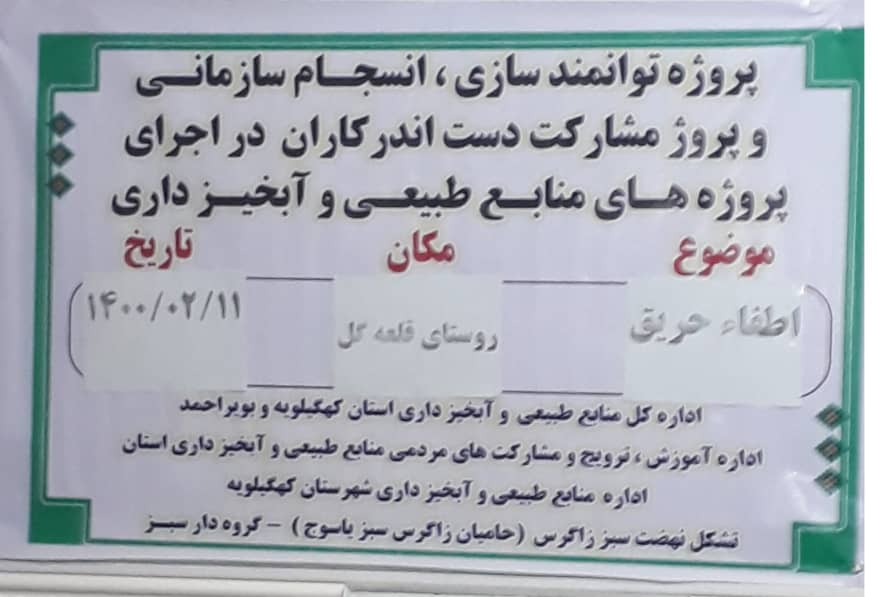 پروژه توانمند سازی ، انسجام سازمانی
و پروژ مشارکت دست اندرکاران در اجرای
پروژه های منابع طبیعی و آبخیز داری
موضوع مکان تاریخ
اطفاء حریق روستای قلعه گل ۱۴۰۰/۰۲/۱۱
اداره کل منابع طبیعی و آبخیز داری استان کهگیلویه و بویراحمد
اداره آموزش ، ترویج و مشارکت های مردمی منابع طبیعی و آبخیز داری استان
اداره منابع طبیعی و آبخیز داری شهرستان کهگیلویه
تشکل نهضت سبز زاگرس (حامیان زاگرس سبز یاسوج ) - گروه دار سبز